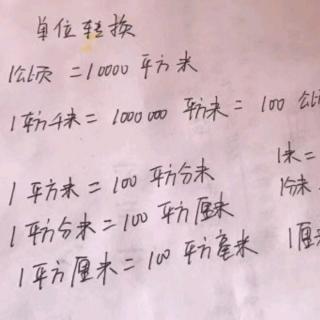 单位转换
1公顷 = 10000 平方米
1平方千米 = 1000000 平方米 = 100 公
1 平方米 = 100 平方分米
1米 =
1 平方分米 = 100 平方厘米
1分米
1 平方厘米 = 100 平方毫米
1厘